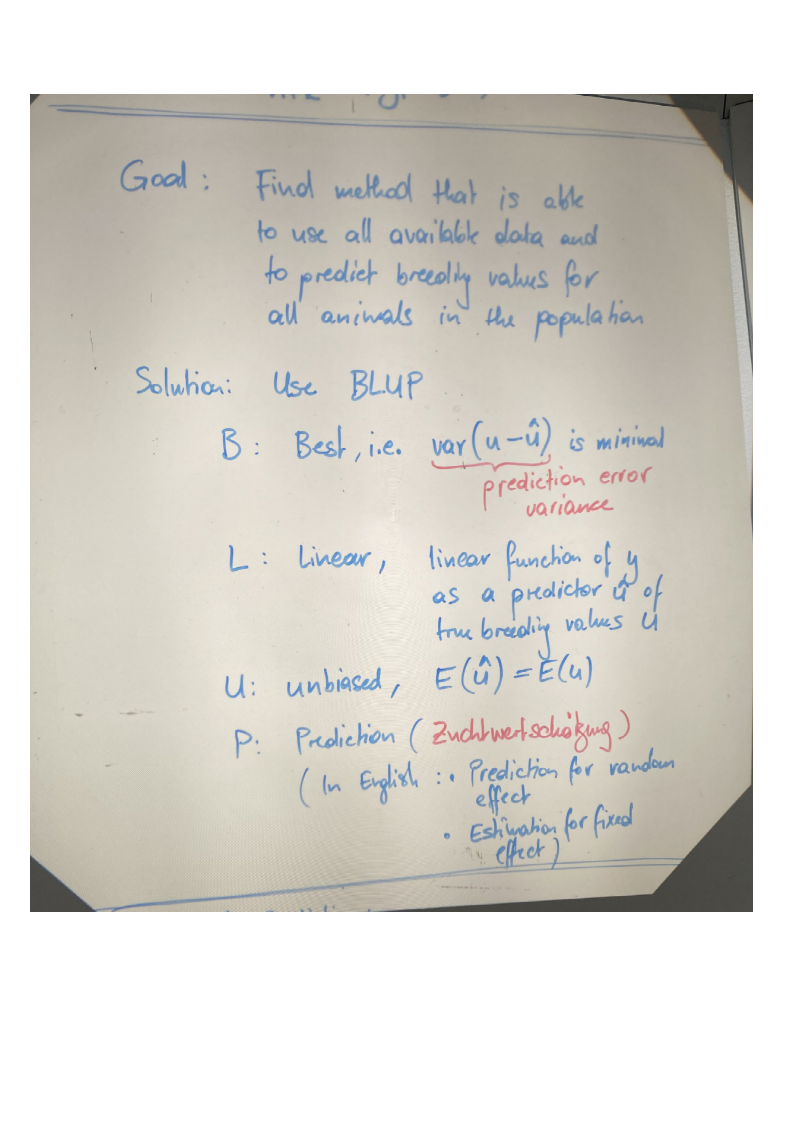 Goal: Find method that is able
to use all available data and
to predict breeding values for
all animals in the population
Solution: Use BLUP
B: Best, i.e. var(u-û) is minimal
prediction error
variance
L: Linear, linear function of y
as a predictor û of
true breeding values u
U: unbiased, E(û) = E(u)
P: Prediction (Zuchtwertschätzung)
(In English: • Prediction for random
effect
• Estimation for fixed
effect)